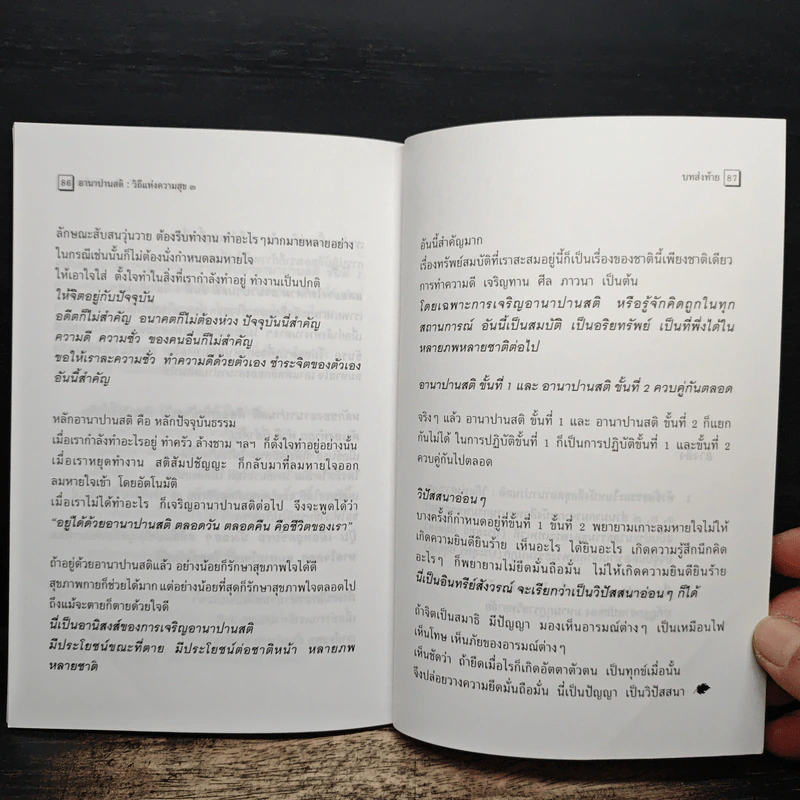 86 อานาปานสติ : วิถีแห่งความสุข ๓
ลักษณะสับสนวุ่นวาย ต้องรีบทำงาน ทำอะไรๆมากมายหลายอย่าง
ในกรณีเช่นนั้นก็ไม่ต้องนั่งกำหนดลมหายใจ
ให้เอาใจใส่ ตั้งใจทำในสิ่งที่เรากำลังทำอยู่ ทำงานเป็นปกติ
ให้จิตอยู่กับปัจจุบัน
อดีตก็ไม่สำคัญ อนาคตก็ไม่ต้องห่วง ปัจจุบันนี้สำคัญ
ความดี ความชั่ว ของคนอื่นก็ไม่สำคัญ
ขอให้เราละความชั่ว ทำความดีด้วยตัวเอง ชำระจิตของตัวเอง
อันนี้สำคัญ
หลักอานาปานสติ คือ หลักปัจจุบันธรรม
เมื่อเรากำลังทำอะไรอยู่ ทำครัว ล้างชาม ฯลฯ ก็ตั้งใจทำอยู่อย่างนั้น
เมื่อเราหยุดทำงาน สติสัมปชัญญะ ก็กลับมาที่ลมหายใจออก
ลมหายใจเข้า โดยอัตโนมัติ
เมื่อเราไม่ได้ทำอะไร ก็เจริญอานาปานสติต่อไป จึงจะพูดได้ว่า
“อยู่ได้ด้วยอานาปานสติ ตลอดวัน ตลอดคืน คือชีวิตของเรา”
ถ้าอยู่ด้วยอานาปานสติแล้ว อย่างน้อยก็รักษาสุขภาพใจได้ดี
สุขภาพกายก็ช่วยได้มาก แต่อย่างน้อยที่สุดก็รักษาสุขภาพใจตลอดไป
ถึงแม้จะตายก็ตายด้วยใจดี
นี่เป็นอานิสงส์ของการเจริญอานาปานสติ
มีประโยชน์ขณะที่ตาย มีประโยชน์ต่อชาติหน้า หลายภพ
หลายชาติ
บทส่งท้าย 87
อันนี้สำคัญมาก
เรื่องทรัพย์สมบัติที่เราสะสมอยู่นี้ก็เป็นเรื่องของชาตินี้เพียงชาติเดียว
การทำความดี เจริญทาน ศีล ภาวนา เป็นต้น
โดยเฉพาะการเจริญอานาปานสติ หรือรู้จักคิดถูกในทุก
สถานการณ์ อันนี้เป็นสมบัติ เป็นอริยทรัพย์ เป็นที่พึ่งได้ใน
หลายภพหลายชาติต่อไป
อานาปานสติ ขั้นที่ 1 และ อานาปานสติ ขั้นที่ 2 ควบคู่กันตลอด
จริงๆ แล้ว อานาปานสติ ขั้นที่ 1 และ อานาปานสติ ขั้นที่ 2 ก็แยก
กันไม่ได้ ในการปฏิบัติขั้นที่ 1 ก็เป็นการปฏิบัติขั้นที่ 1 และขั้นที่ 2
ควบคู่กันไปตลอด
วิปัสสนาอ่อนๆ
บางครั้งก็กำหนดอยู่ที่ขั้นที่ 1 ขั้นที่ 2 พยายามเกาะลมหายใจไม่ให้
เกิดความยินดียินร้าย เห็นอะไร ได้ยินอะไร เกิดความรู้สึกนึกคิด
อะไรๆ ก็พยายามไม่ยึดมั่นถือมั่น ไม่ให้เกิดความยินดียินร้าย
นี่เป็นอินทรีย์สังวรณ์ จะเรียกว่าเป็นวิปัสสนาอ่อนๆ ก็ได้
ถ้าจิตเป็นสมาธิ มีปัญญา มองเห็นอารมณ์ต่างๆ เป็นเหมือนไฟ
เห็นโทษ เห็นภัยของอารมณ์ต่างๆ
เห็นชัดว่า ถ้ายึดเมื่อไรก็เกิดอัตตาตัวตน เป็นทุกข์เมื่อนั้น
จึงปล่อยวางความยึดมั่นถือมั่น นี่เป็นปัญญา เป็นวิปัสสนา